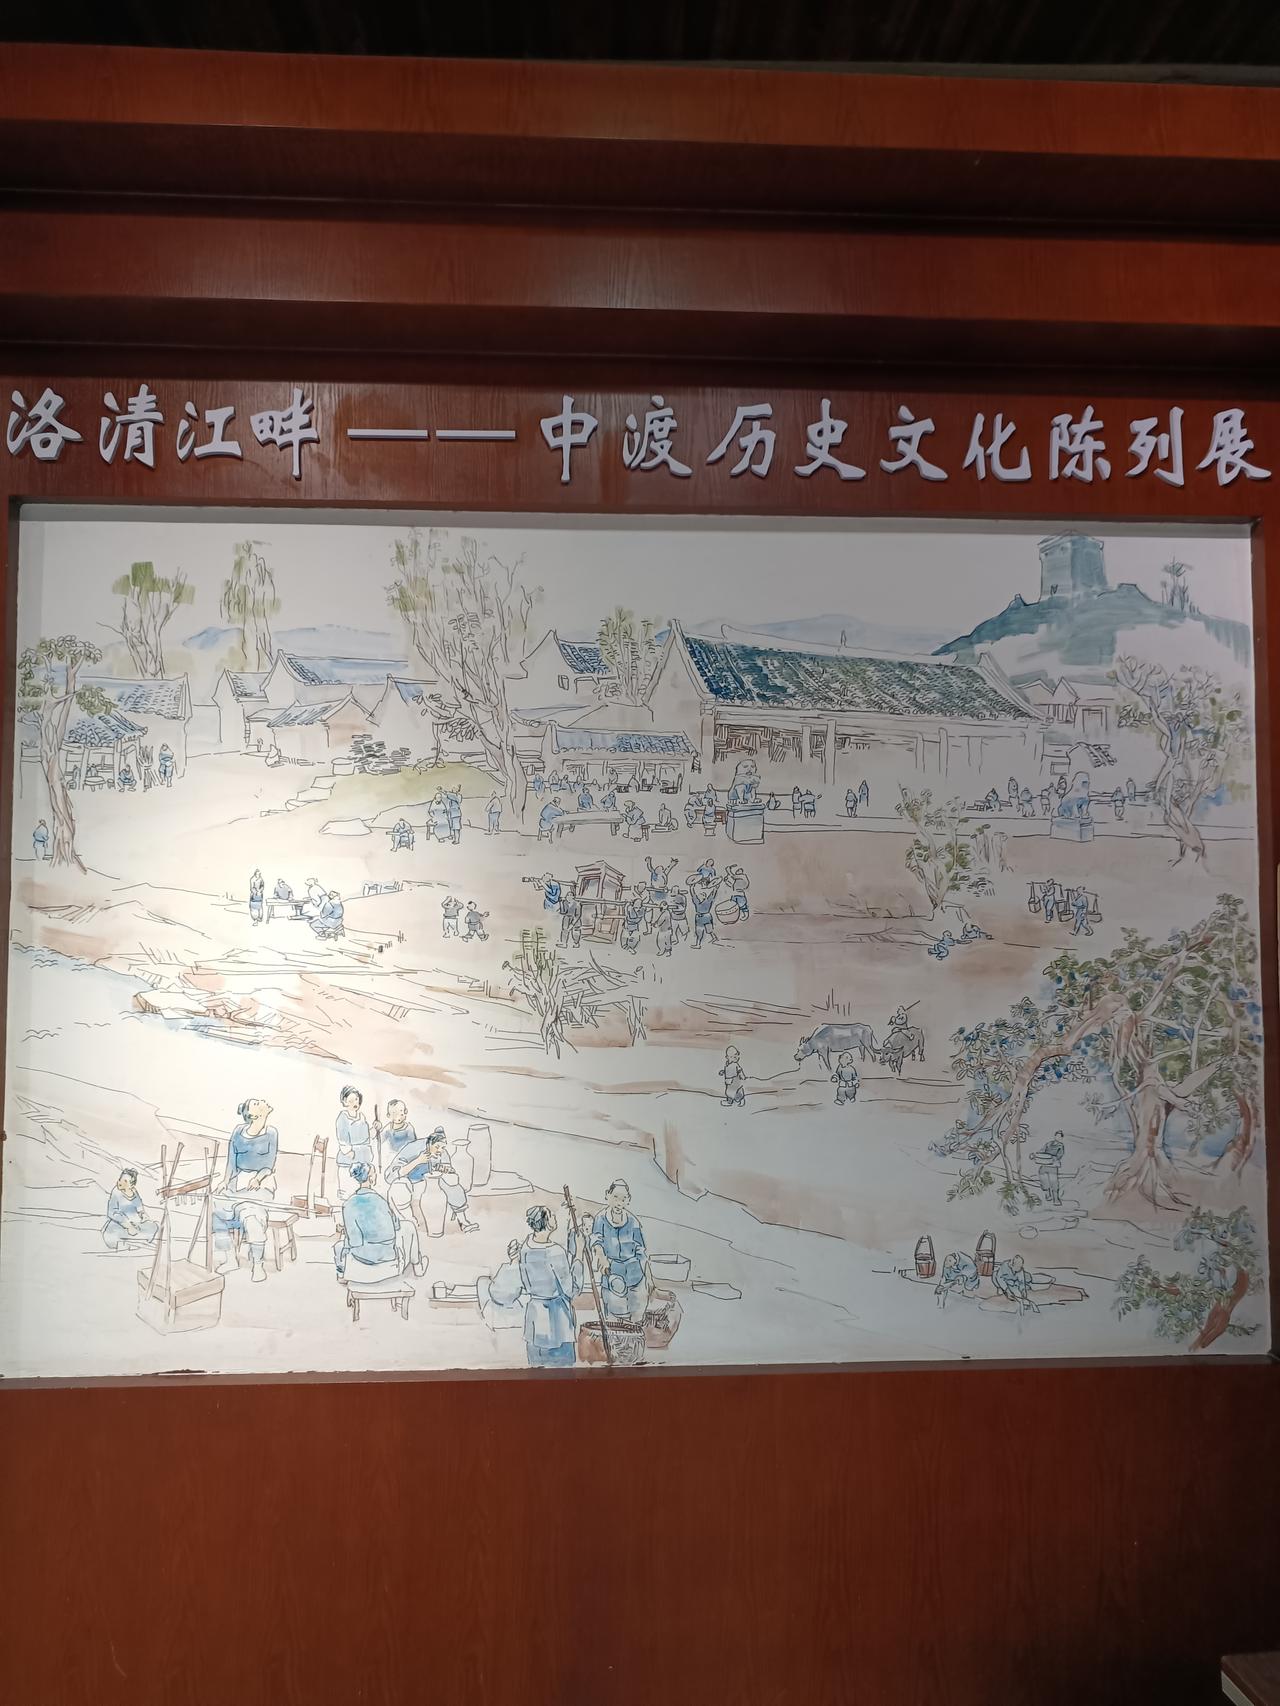 洛清江畔——中渡历史文化陈列展